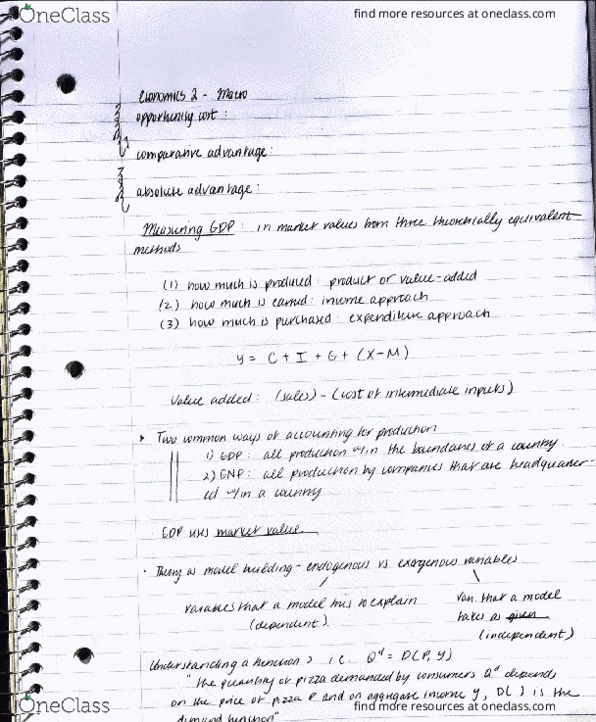 OneClass
find more resources at oneclass.com
Economics 2 - Macro
opportunity cost :
comparative advantage:
absolute advantage:
Measuring GDP : in market values from three theoretically equivalent
methods
(1) how much is produced: product or value-added
(2) how much is earned: income approach
(3) how much is purchased: expenditure approach
y = C + I + G + (X-M)
Value added: (sales) - (cost of intermediate inputs)
Two common ways of accounting for production
1) GDP: all production w/in the boundaries of a country.
2) GNP: all production by companies that are headquarter-
ed w/in a country
GDP uses market value
· Theory as model building - endogenous vs exogenous variables
variables that a model tries to explain
(dependent).
var. that a model
takes as given
(independent)
Understanding a function > i.e. Qᵈ = D(P, Y)
"the quantity of pizza demanded by consumers Qᵈ depends
on the price of pizza P and on aggregate income Y, D( ) is the
demand function"
OneClass
find more resources at oneclass.com